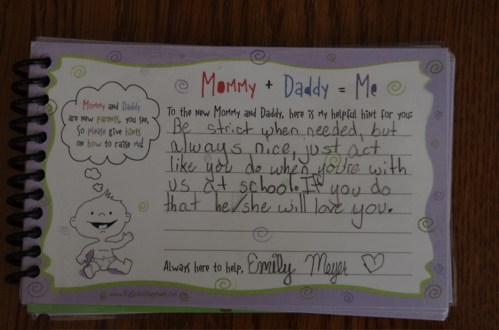 Mommy + Daddy = Me
Mommy and Daddy
are new parents, you see,
so please give hints
on how to raise me!
To the new Mommy and Daddy, here is my helpful hint for you:
Be strict when needed, but
always nice, just act
like you do when you're with
us at school. If you do
that he/she will love you.
Always here to help, Emily Meyer